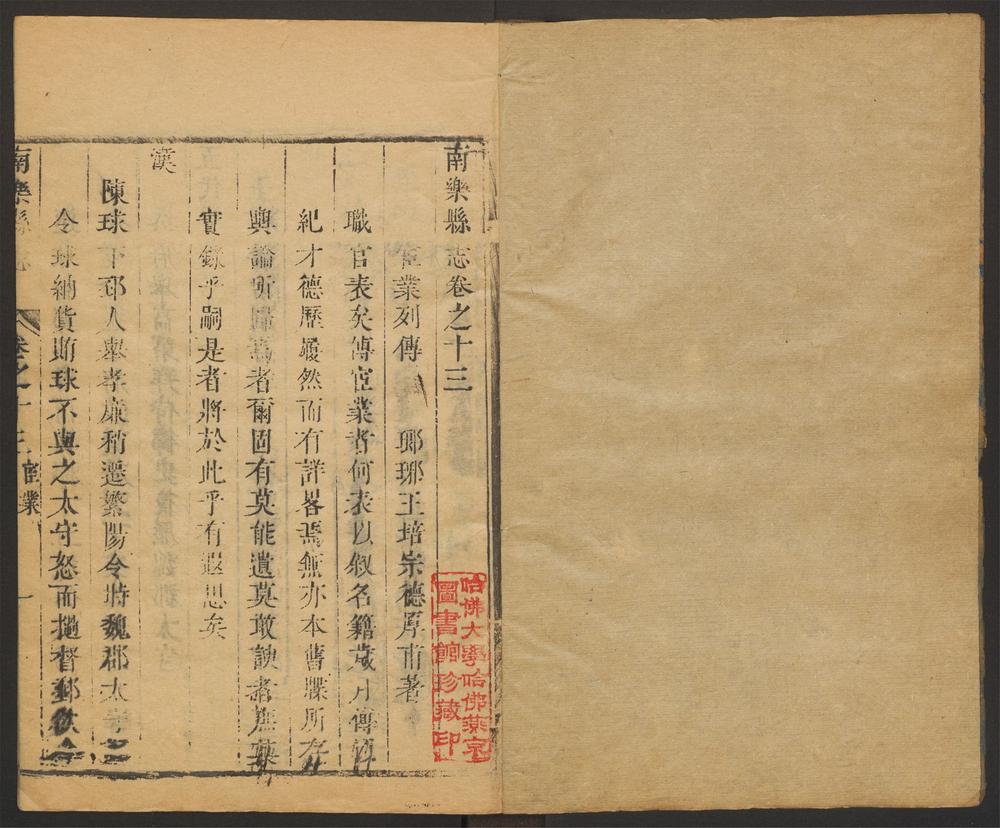 南樂縣志卷之十三
宦業列傳 瑯琊王培宗德厚甫著
職官表矣傳宦業者何表以叙名籍歲月傳以
紀才德歷履然而有詳畧焉無亦本舊牒所存
輿論所歸焉者爾固有莫能遺莫敢諛者庶幾
實錄乎嗣是者將於此乎有遐思矣
漢
陳球下邳人舉孝廉稍遷繁陽令時魏郡太守
令球納貨賄球不與之太守怒而撾督郵欲令
南樂縣志 卷之十三 宦業 一
哈佛大學哈佛燕京
圖書館珍藏印